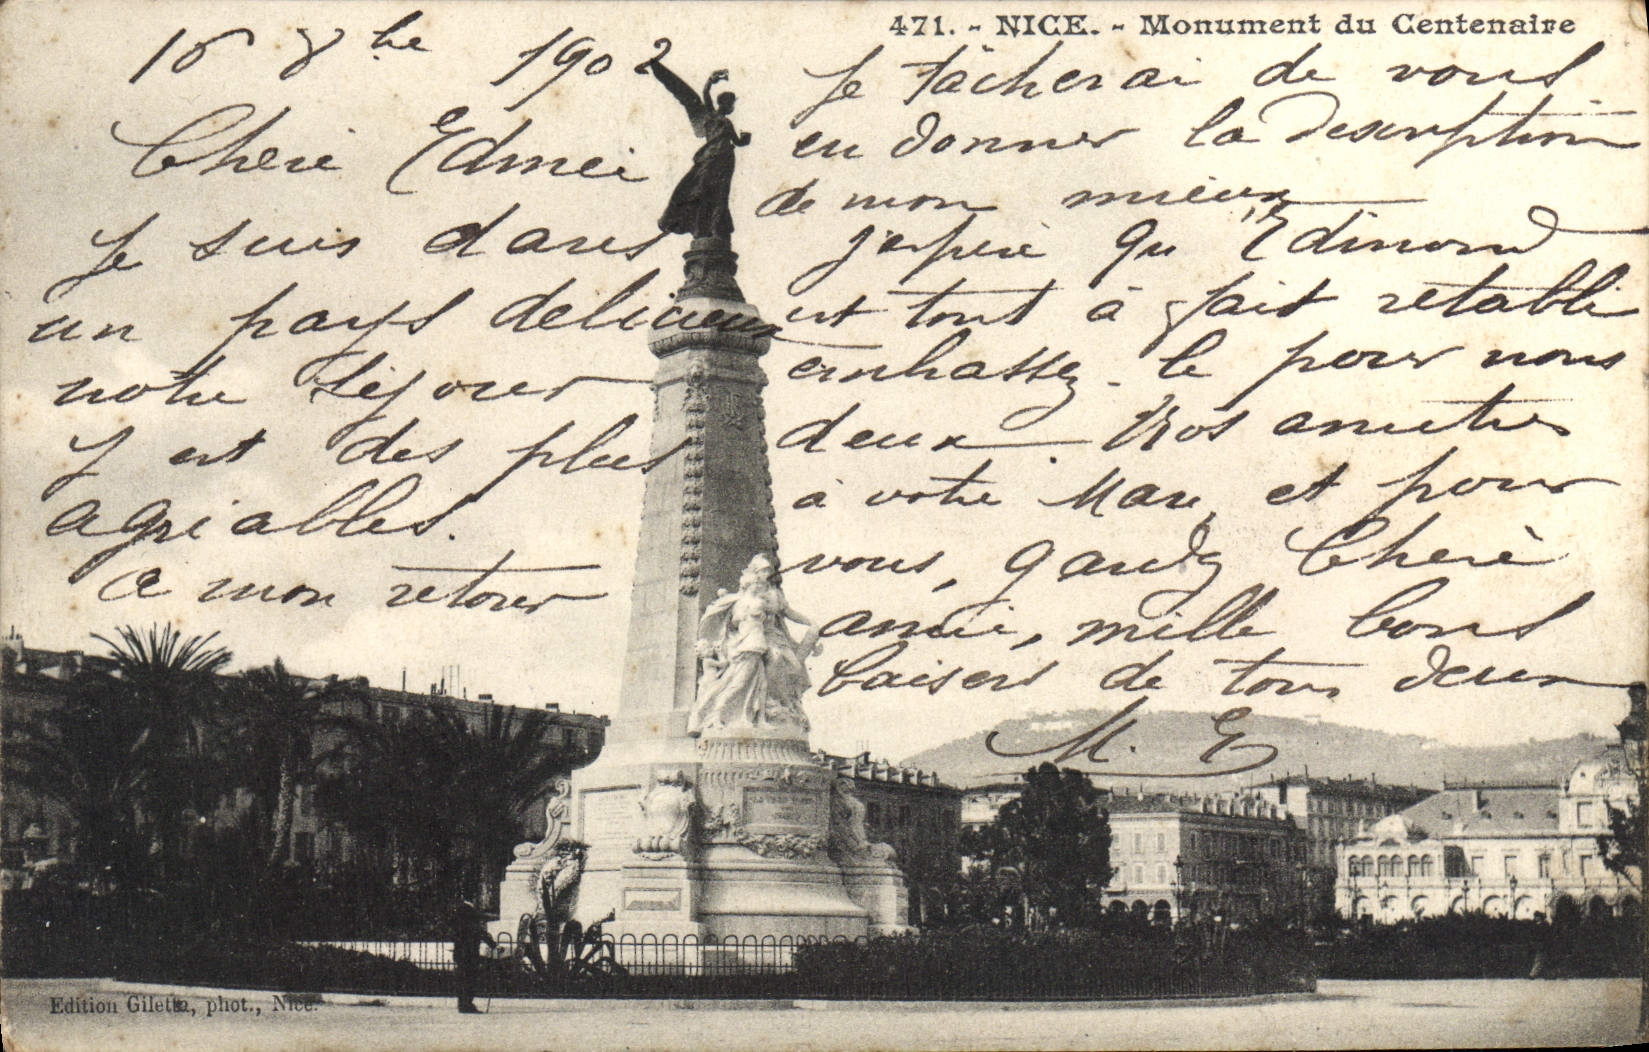 471. - NICE. - Monument du Centenaire
16 8bre 1902
Cherè Edmeè
Je suis dans
un pays delicieux
notre séjour
y est des plus
agriables.
a mon retour
Je tâcherai de vous
en donner la description
de mon mieux
j'espère qu'Edmond
est tout à fait retabli
embassez-le pour nous
deux. Nos amities
à votre Mari, et pour
vous, gardez Cherè
amie, mille bons
baisers de tous deux
M. E
Edition Giletta, phot., Nice.